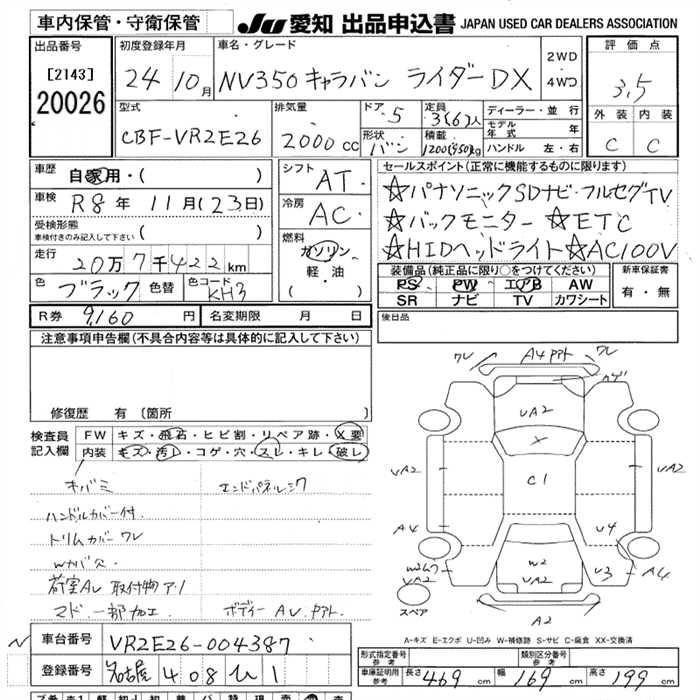 車内保管・守衛保管 JU 愛知 出品申込書 JAPAN USED CAR DEALERS ASSOCIATION
出品番号 初度登録年月 車名・グレード 評価点
[2143] 24年 10月 NV350キャラバン ライダーDX 2WD・4WD 3.5
20026
型式 排気量 ドア 5 定員 3(6)人 ディーラー・並行 外装 内装
CBF-VR2E26 2000cc 形状 バン 積載 1200(950)kg モデル年式 年 C C
ハンドル 左・右
車歴 自家用・( ) シフト AT セールスポイント(正常に機能するものに限ります)
車検 R8年 11月(23日) 冷房 AC ☆パナソニックSDナビ・フルセグTV
受検形態 車検付きのみ記入して下さい ( ) 燃料 ☆バックモニター ☆ETC
走行 20万7千422km ガソリン・軽油・( ) ☆HIDヘッドライト☆AC100V
色 ブラック 色替 色コード KH3 装備品(純正品に限り○をつけてください) 新車保証書
PS PW エアB AW 有・無
SR ナビ TV カワシート
R券 9,160円 名変期限 月 日 後日品
注意事項申告欄(不具合内容等は具体的に記入して下さい)
修復歴 有 〔箇所 〕
検査員記入欄 FW キズ・飛石・ヒビ割・リペア跡・X要
内装 キズ・汚レ・コゲ・穴・スレ・キレ・破レ
キバミ エンドパネルシワ
ハンドルカバー付
トリムカバーワレ
荷室AU 取付物アリ
マド一部加工 ボディーAU
ワレ A4 ワレ
UA2
X
UA2 C1 UA2
A4 U4
W2 U3 A4
UA2 UA2
スペア A2
A-キズ E-エクボ U-凹み W-補修跡 S-サビ C-腐食 XX-交換済
車台番号 VR2E26-004387
登録番号 名古屋 408 ひ 1
形式指定番号 参考 類別区分番号 参考
車庫証明用 参考 長さ 469cm 幅 169cm 高さ 199cm